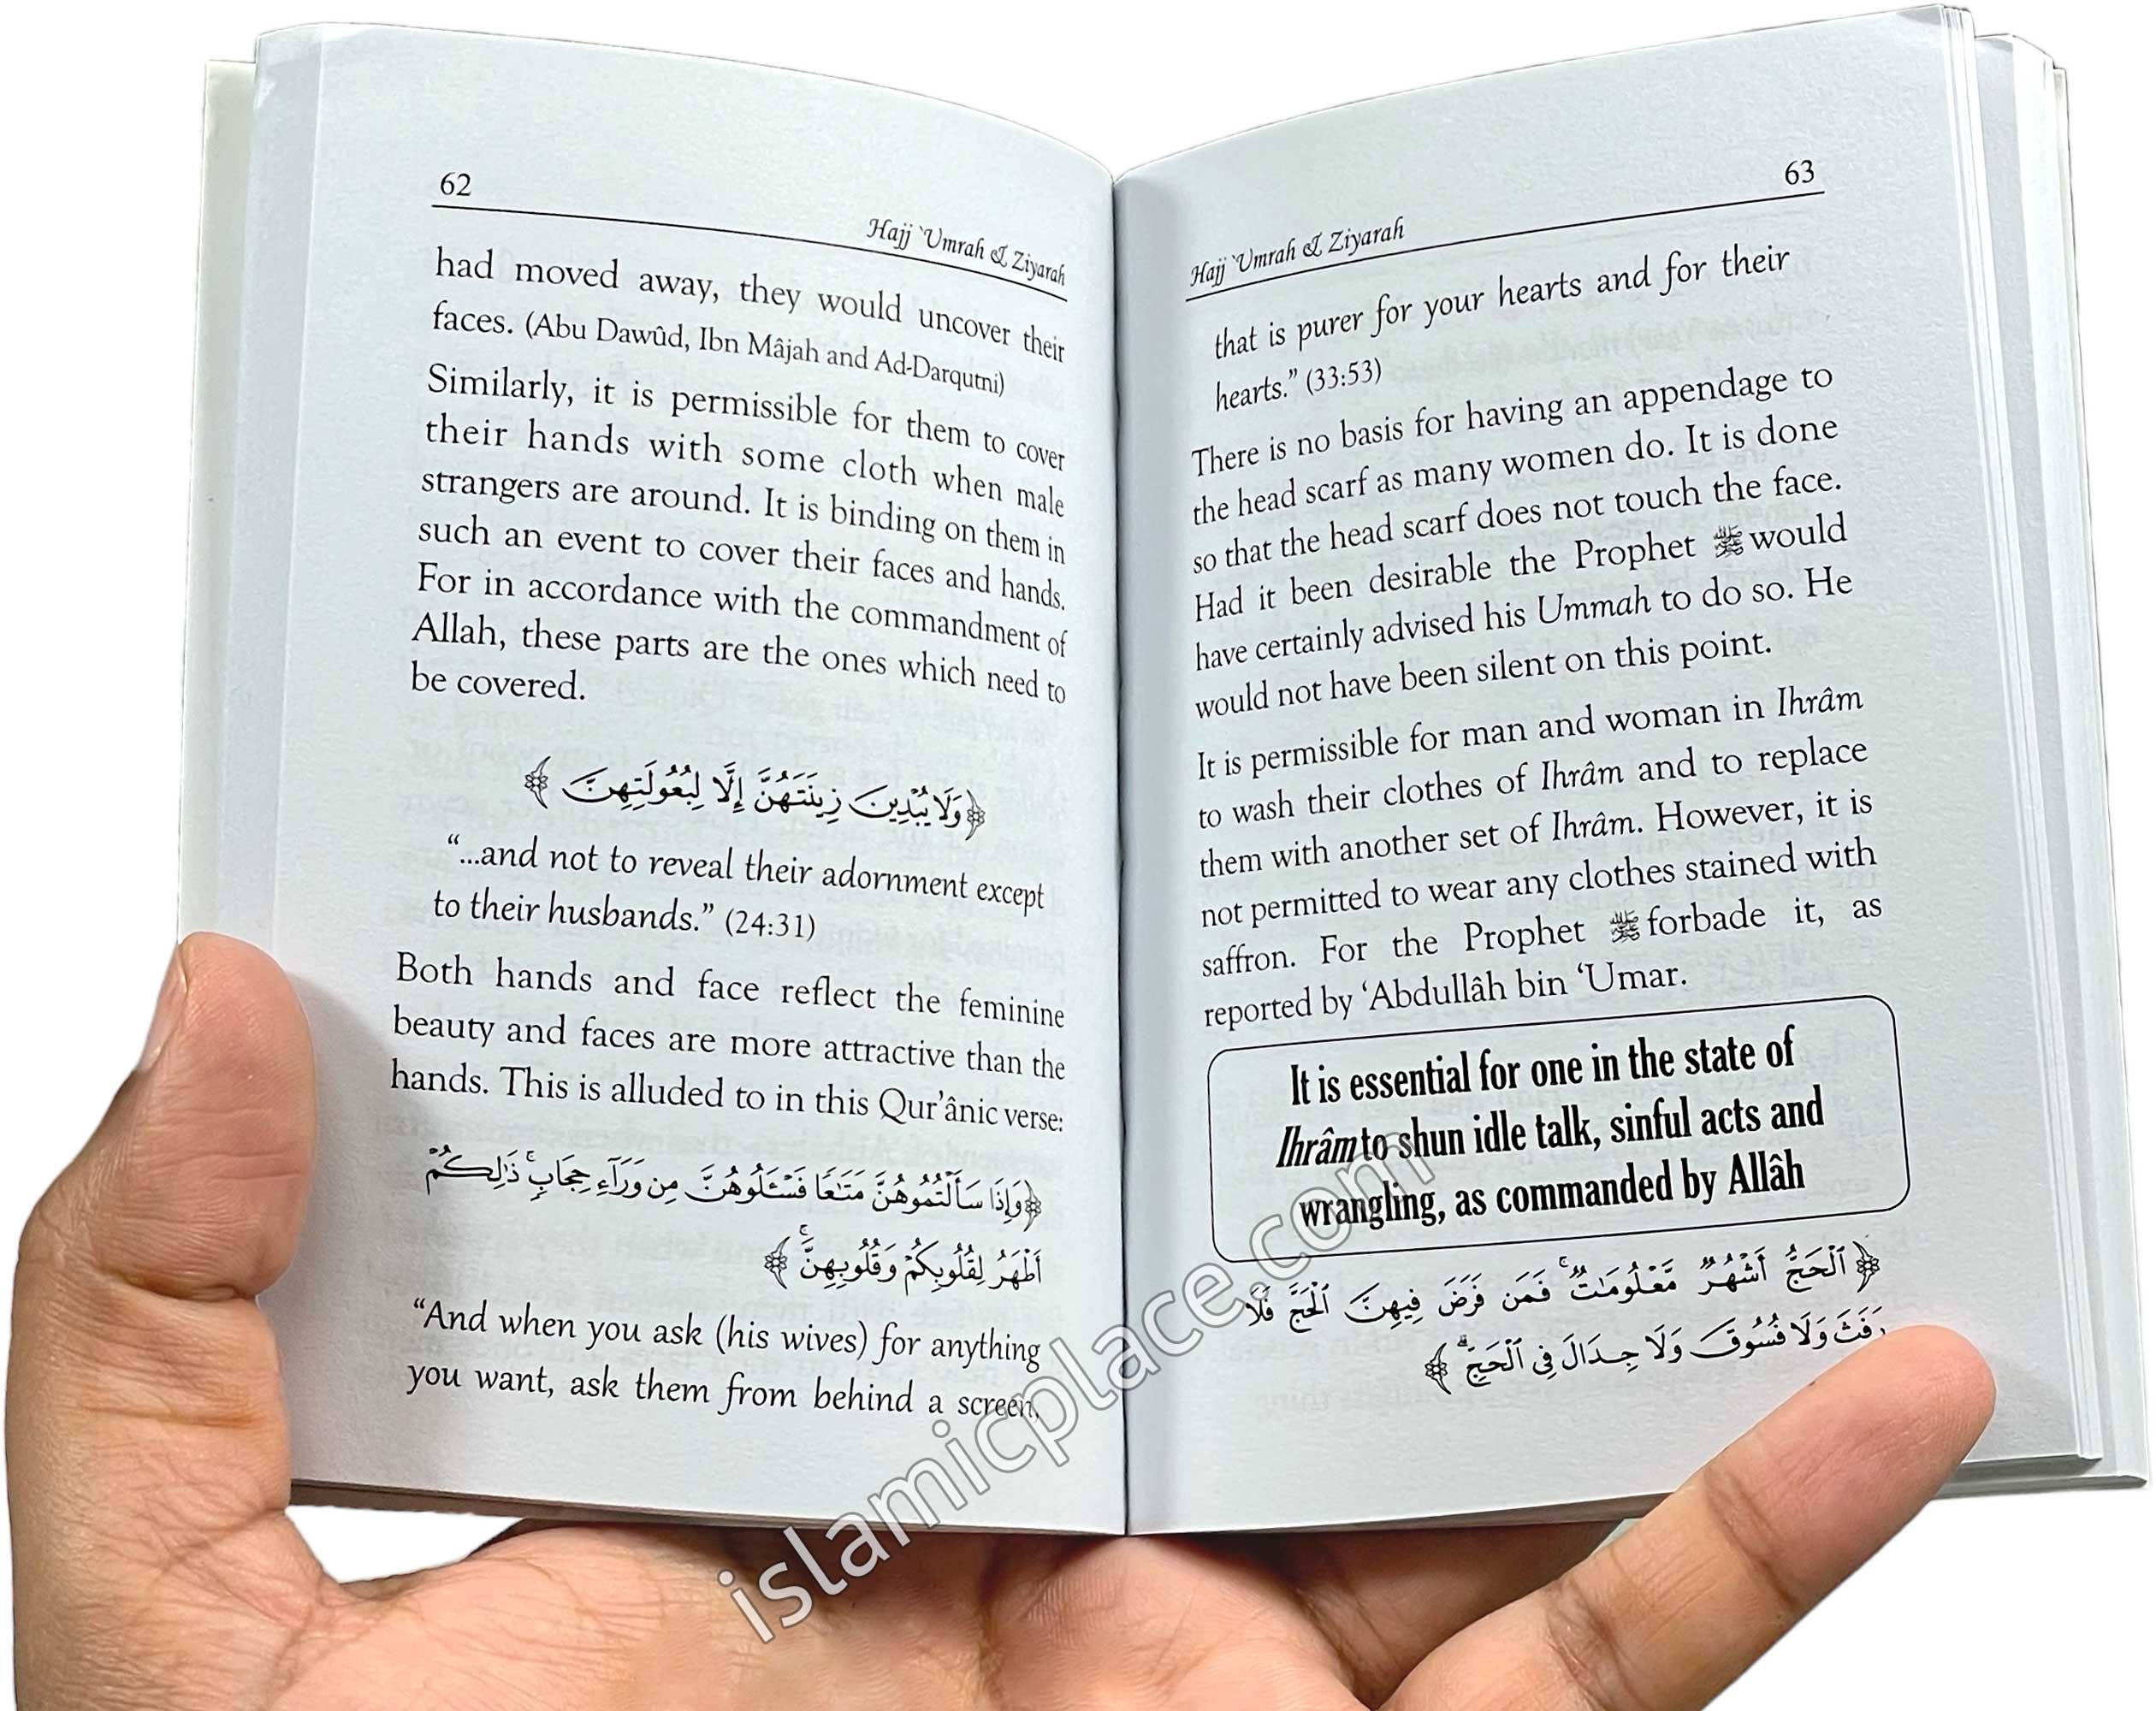 62
Hajj `Umrah & Ziyarah
had moved away, they would uncover their
faces. (Abu Dawûd, Ibn Mâjah and Ad-Darqutni)
Similarly, it is permissible for them to cover
their hands with some cloth when male
strangers are around. It is binding on them in
such an event to cover their faces and hands.
For in accordance with the commandment of
Allah, these parts are the ones which need to
be covered.
﴿وَلَا يُبْدِينَ زِينَتَهُنَّ إِلَّا لِبُعُولَتِهِنَّ﴾
“...and not to reveal their adornment except
to their husbands.” (24:31)
Both hands and face reflect the feminine
beauty and faces are more attractive than the
hands. This is alluded to in this Qur’ânic verse:
﴿وَإِذَا سَأَلْتُمُوهُنَّ مَتَٰعًا فَسْـَٔلُوهُنَّ مِن وَرَآءِ حِجَابٍ ۚ ذَٰلِكُمْ
أَطْهَرُ لِقُلُوبِكُمْ وَقُلُوبِهِنَّ ۚ﴾
“And when you ask (his wives) for anything
you want, ask them from behind a screen,
63
Hajj `Umrah & Ziyarah
that is purer for your hearts and for their
hearts.” (33:53)
There is no basis for having an appendage to
the head scarf as many women do. It is done
so that the head scarf does not touch the face.
Had it been desirable the Prophet ﷺ would
have certainly advised his Ummah to do so. He
would not have been silent on this point.
It is permissible for man and woman in Ihrâm
to wash their clothes of Ihrâm and to replace
them with another set of Ihrâm. However, it is
not permitted to wear any clothes stained with
saffron. For the Prophet ﷺ forbade it, as
reported by ‘Abdullâh bin ‘Umar.
It is essential for one in the state of
Ihrâm to shun idle talk, sinful acts and
wrangling, as commanded by Allâh
﴿ٱلْحَجُّ أَشْهُرٌ مَّعْلُومَٰتٌ ۚ فَمَن فَرَضَ فِيهِنَّ ٱلْحَجَّ فَلَا
رَفَثَ وَلَا فُسُوقَ وَلَا جِدَالَ فِى ٱلْحَجِّ ۗ﴾
islamicplace.com